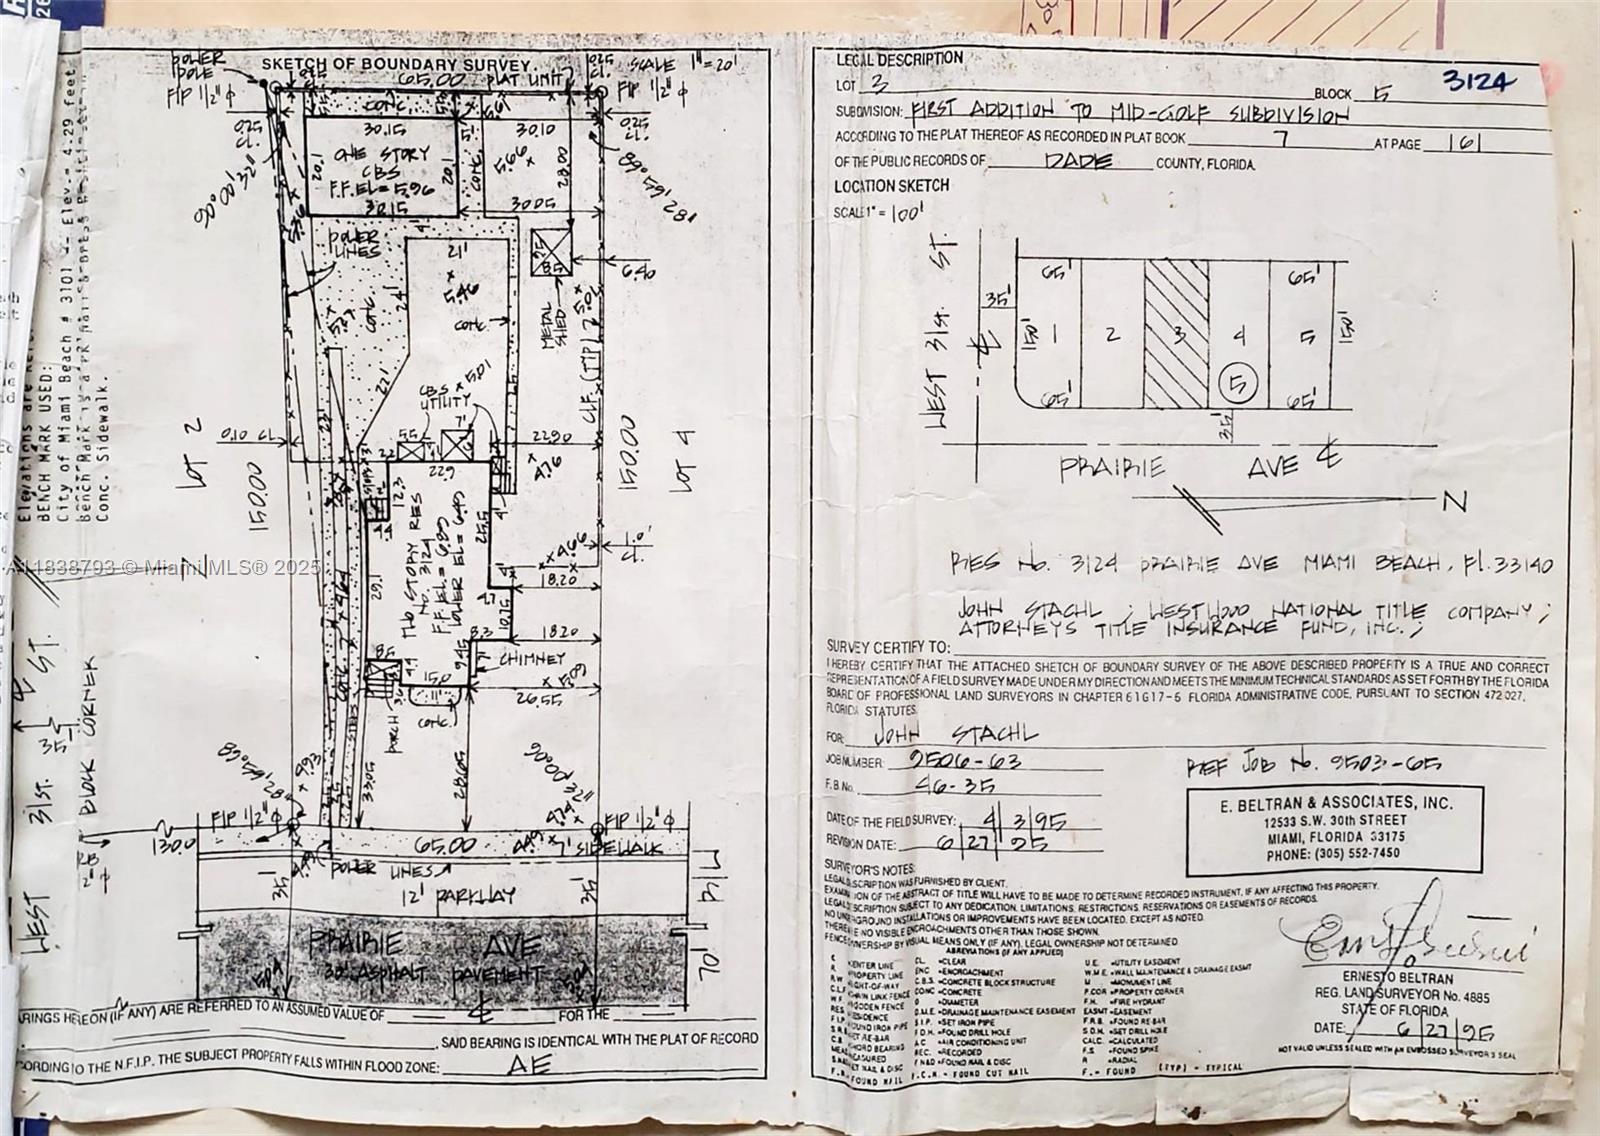 SKETCH OF BOUNDARY SURVEY.
SCALE 1"=20'
POWER
POLE
FIP 1/2" φ
65.00
PLAT LIMIT
FIP 1/2" φ
0.25
CL.
0.25
CL.
CONC.
30.15
30.10
90°00'32"
89°59'28"
ONE STORY
CBS
F.F.EL=5.96
20.1
20.1
5'
CONC.
5.66
28.00
30.15
30.05
5.36
POWER
LINES
4'
21'
5.46
24'
CONC.
CONC.
8.5
METAL
SHED
6.40
5.07
CLF. (TYP)
22'
CBS
UTILITY
5.01
7'
5.5
22.9
22.90
4.76
0.10 CL.
LOT 2
150.00
150.00
LOT 4
12.3
4.4
TWO STORY RES
No. 3124
F.F.EL.= 6.89
LOWER EL= 6.45
25.5
4'
29.1
4.66
1.0'
CL.
18.20
10.75
3.3
18.20
9.45
7'
CHIMNEY
8.5
4.4
15.0
5.09
26.55
PORCH
CONC.
33.05
28.65
89°59'28"
90°00'32"
4.93
FIP 1/2" φ
FIP 1/2" φ
130.0
65.00
7' SIDEWALK
POWER LINES
12' PARKWAY
35'
35'
R/W
70'
PRAIRIE AVE
30' ASPHALT PAVEMENT
WEST 31st. ST.
35'
BLOCK CORNER
Elevations are
BENCH MARK USED:
City of Miami Beach # 3101 -- Elev.= 4.29 feet
Conc. Sidewalk.
A11838793 © Miami MLS® 2025
HEREON (IF ANY) ARE REFERRED TO AN ASSUMED VALUE OF FOR THE
SAID BEARING IS IDENTICAL WITH THE PLAT OF RECORD
TO THE N.F.I.P. THE SUBJECT PROPERTY FALLS WITHIN FLOOD ZONE: AE
LEGAL DESCRIPTION
3124
LOT 3 BLOCK 5
SUBDIVISION: FIRST ADDITION TO MID-GOLF SUBDIVISION
ACCORDING TO THE PLAT THEREOF AS RECORDED IN PLAT BOOK 7 AT PAGE 161
OF THE PUBLIC RECORDS OF DADE COUNTY, FLORIDA.
LOCATION SKETCH
SCALE 1" = 100'
WEST 31st. ST.
65'
65'
35'
150'
1
2
3
4
5
150'
5
65'
65'
35'
PRAIRIE AVE
N
RES No. 3124 PRAIRIE AVE MIAMI BEACH, Fl. 33140
JOHN STACHL ; WESTWOOD NATIONAL TITLE COMPANY ;
ATTORNEYS TITLE INSURANCE FUND, INC. ;
SURVEY CERTIFY TO:
I HEREBY CERTIFY THAT THE ATTACHED SKETCH OF BOUNDARY SURVEY OF THE ABOVE DESCRIBED PROPERTY IS A TRUE AND CORRECT
REPRESENTATION OF A FIELD SURVEY MADE UNDER MY DIRECTION AND MEETS THE MINIMUM TECHNICAL STANDARDS AS SET FORTH BY THE FLORIDA
BOARD OF PROFESSIONAL LAND SURVEYORS IN CHAPTER 61G17-6 FLORIDA ADMINISTRATIVE CODE, PURSUANT TO SECTION 472.027,
FLORIDA STATUTES.
FOR: JOHN STACHL
JOB NUMBER: 9506-63
REF JOB No. 9503-65
F.B No. 46-35
DATE OF THE FIELD SURVEY: 4/3/95
REVISION DATE: 6/27/95
E. BELTRAN & ASSOCIATES, INC.
12533 S.W. 30th STREET
MIAMI, FLORIDA 33175
PHONE: (305) 552-7450
SURVEYOR'S NOTES:
LEGAL DESCRIPTION WAS FURNISHED BY CLIENT.
EXAMINATION OF THE ABSTRACT OF TITLE WILL HAVE TO BE MADE TO DETERMINE RECORDED INSTRUMENT, IF ANY AFFECTING THIS PROPERTY.
LEGAL DESCRIPTION SUBJECT TO ANY DEDICATION, LIMITATIONS, RESTRICTIONS, RESERVATIONS OR EASEMENTS OF RECORDS.
NO UNDERGROUND INSTALLATIONS OR IMPROVEMENTS HAVE BEEN LOCATED, EXCEPT AS NOTED.
THERE ARE NO VISIBLE ENCROACHMENTS OTHER THAN THOSE SHOWN.
FENCE OWNERSHIP BY VISUAL MEANS ONLY (IF ANY). LEGAL OWNERSHIP NOT DETERMINED
ABREVIATIONS (IF ANY APPLIED)
CL. =CLEAR
ENC =ENCROACHMENT
C.B.S. =CONCRETE BLOCK STRUCTURE
CONC =CONCRETE
=DIAMETER
D.M.E. =DRAINAGE MAINTENANCE EASEMENT
S.I.P. =SET IRON PIPE
F.D.H. =FOUND DRILL HOLE
A C =AIR CONDITIONING UNIT
REC. =RECORDED
FN&D =FOUND NAIL & DISC
F.C.N - FOUND CUT NAIL
U.E. =UTILITY EASEMENT
W.M.E. =WALL MAINTENANCE & DRAINAGE EASMT
M =MONUMENT LINE
P.COR =PROPERTY CORNER
F.H. =FIRE HYDRANT
EASMT =EASEMENT
F.R.B =FOUND RE-BAR
S.D.H. =SET DRILL HOLE
CALC. =CALCULATED
F.S =FOUND SPIKE
R =RADIAL
F. - FOUND (TYP) - TYPICAL
ERNESTO BELTRAN
REG. LAND SURVEYOR No. 4885
STATE OF FLORIDA
DATE: 6/27/95
NOT VALID UNLESS SEALED WITH AN EMBOSSED SURVEYOR'S SEAL